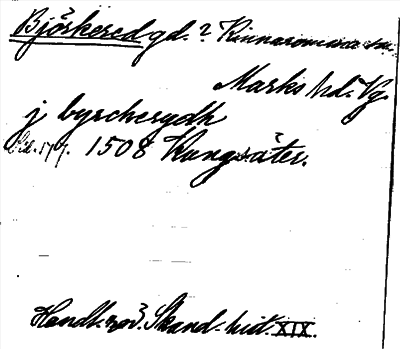 Björkered gd. ? Kinnarumma sn.
Marks hd. Vg.
j byrcherydh
1508 Kungsäter.
Handl. rör. Skand. hist. XIX.